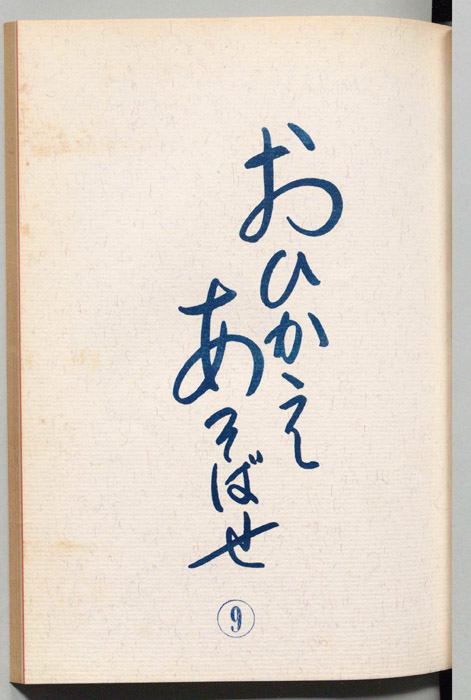 おひかえ
あそばせ
9